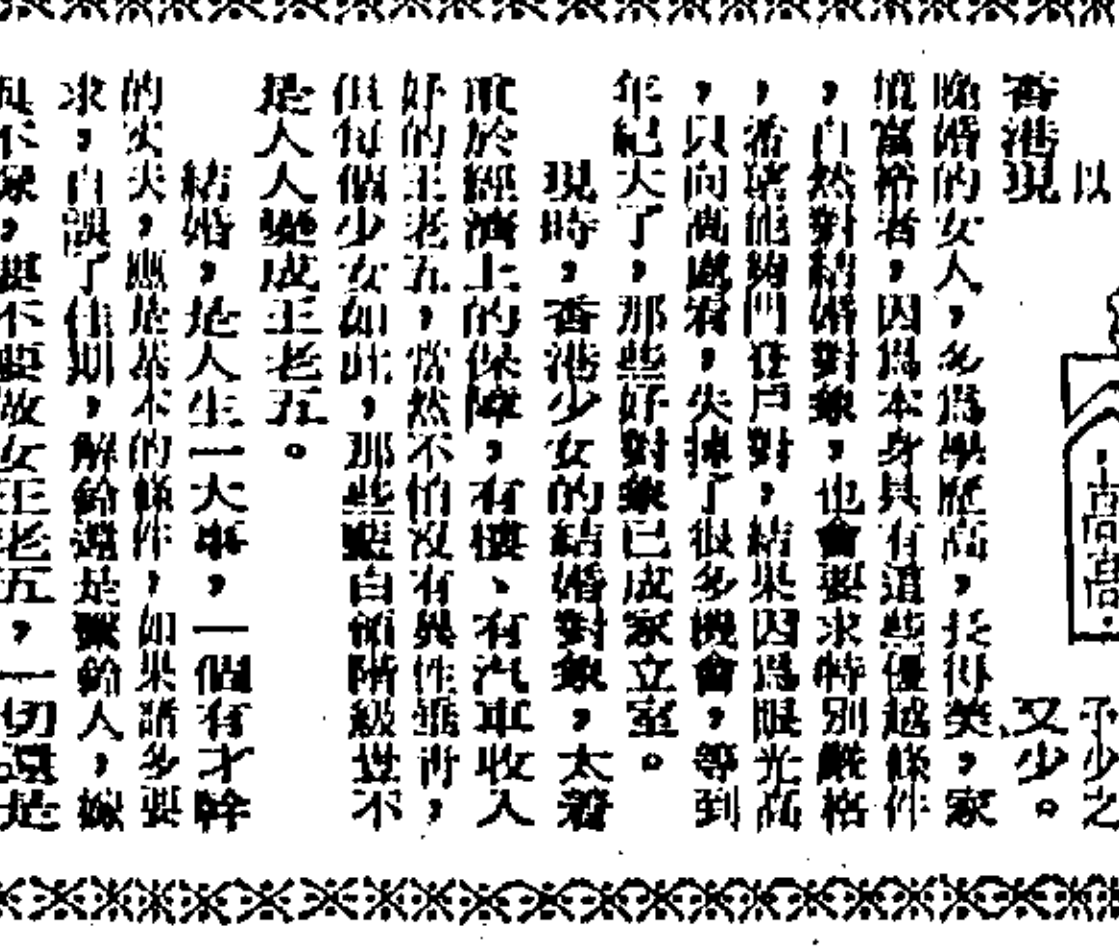 以
子少之
，高高．
香港現
又少。
晚婚的女人，多為學歷高，長得美，家
境富裕者，因為本身具有這些優越條件
，自然對結婚對象，也會要求特別嚴格
，希望能夠門登戶對，結果因為眼光高
，只向高處看，失掉了很多機會，等到
年紀大了，那些好對象已成家立室。
現時，香港少女的結婚對象，太着
重於經濟上的保障，有樓、有汽車收入
好的王老五，當然不怕沒有異性垂青，
但每個少女如此，那些藍白領階級豈不
是人人變成王老五。
結婚，是人生一大事，一個有才幹
的丈夫，應是基本的條件，如果諸多要
求，自誤了佳期，解鈴還是繫鈴人，嫁
與不嫁，要不要做女王老五，一切還是